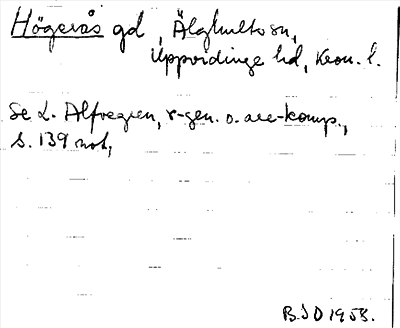 Högerås gd, Älghults sn,
Uppvidinge hd, Kron. l.
Se L. Alfvegren, r-gen. o. are-komp.,
s. 139 not,
BJD 1953.